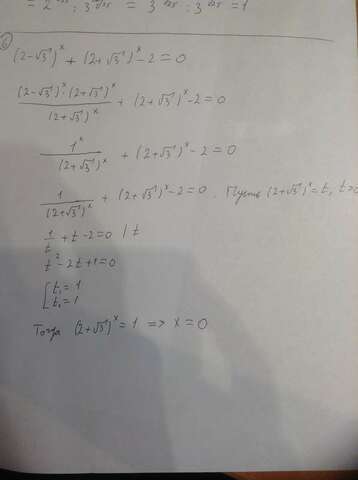 = 2^√25 : 3^√25 = 3^√25 : 3^√25 = 1
6
(2-√3)^x + (2+√3)^x - 2 = 0
(2-√3)^x · (2+√3)^x / (2+√3)^x + (2+√3)^x - 2 = 0
1^x / (2+√3)^x + (2+√3)^x - 2 = 0
1 / (2+√3)^x + (2+√3)^x - 2 = 0. Пусть (2+√3)^x = t, t>0
1/t + t - 2 = 0 | t
t² - 2t + 1 = 0
[ t₁ = 1
t₁ = 1
Тогда (2+√3)^x = 1 => x = 0